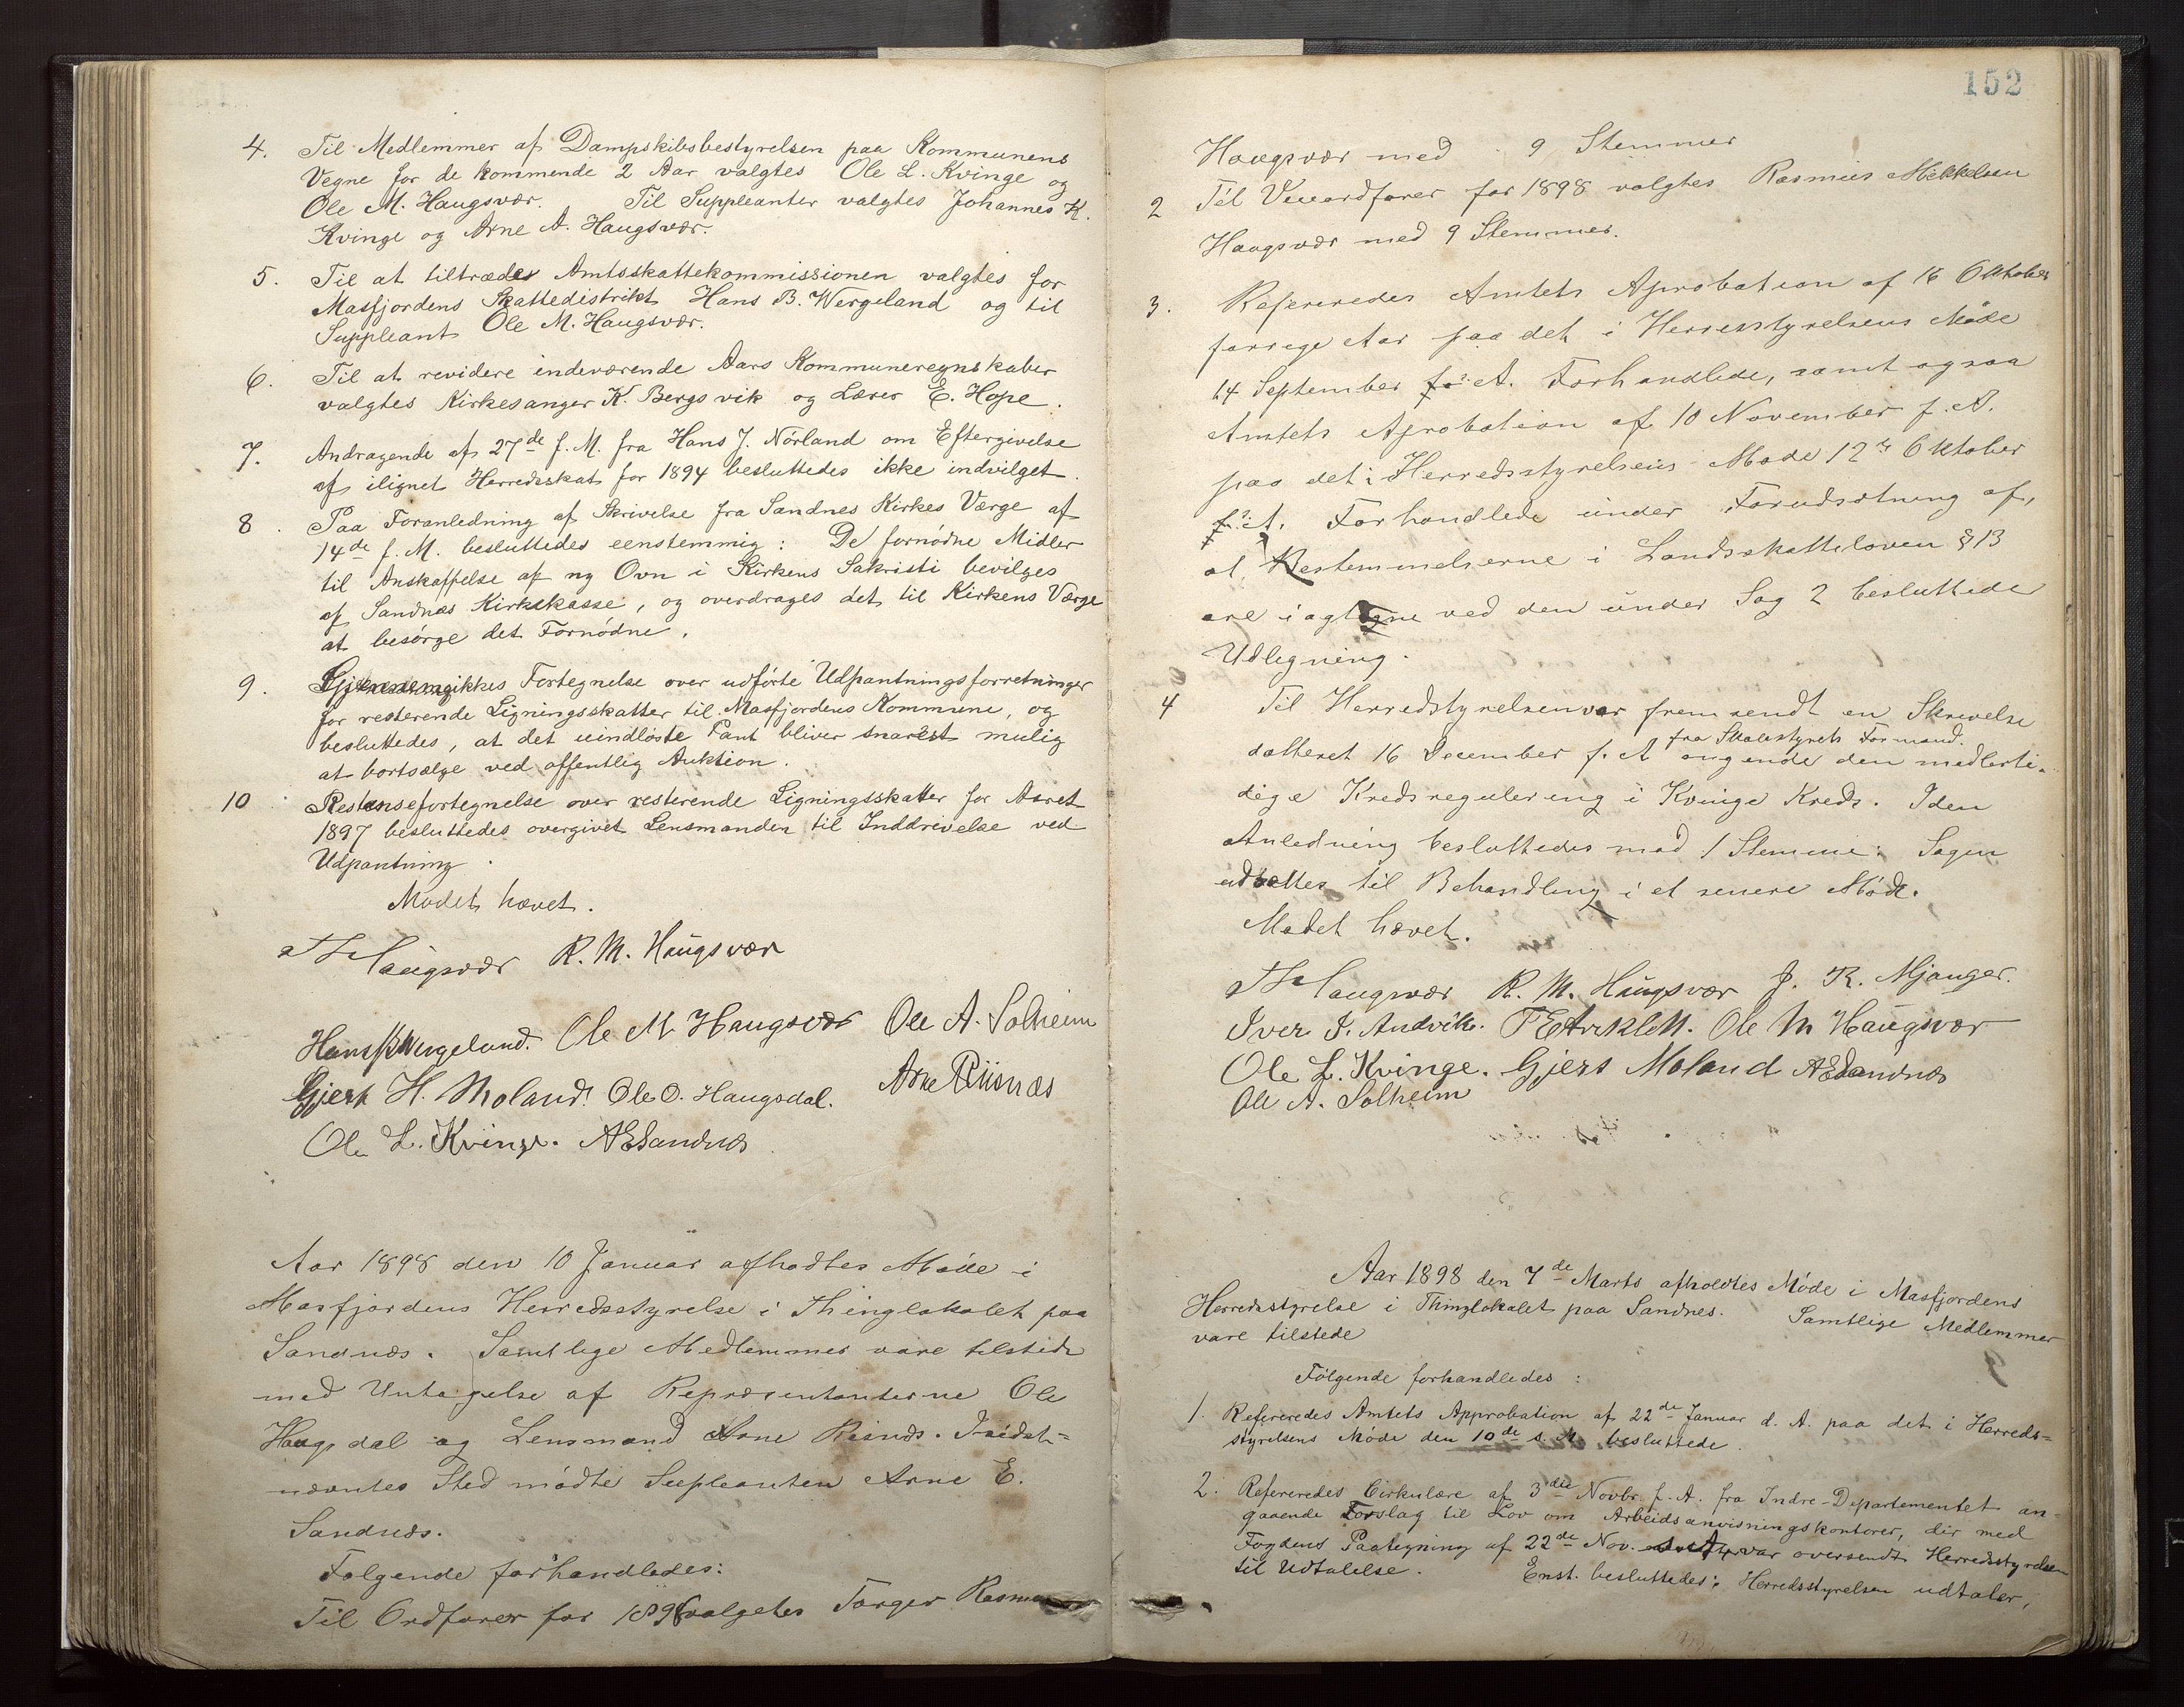 4. Til Medlemmer af Dampskibsbestyrelsen paa Kommunens
Vegne for de kommende 2 Aar valgtes Ole L. Kvinge og
Ole M. Haugsvær. Til Suppleanter valgtes Johannes K.
Kvinge og Arne A. Haugsvær.
5. Til at tiltrædes Amtsskattekommissionen valgtes for
Masfjordens Skattedistrikt Hans B. Wergeland og til
Suppleant Ole M. Haugsvær.
6. Til at revidere indeværende Aars Kommuneregnskaber
valgtes Kirkesanger K. Bergsvik og Lærer E. Hope.
7. Andragende af 27de f. M. fra Hans J. Nórland om Eftergivelse
af ilignet Herredsskat for 1894 besluttedes ikke indvilget.
8. Paa Foranledning af Skrivelse fra Sandnes Kirkes Værge af
14de f. M. besluttedes eenstemmig: De fornódne Midler
til Anskaffelse af ny Ovn i Kirkens Sakristi bevilges
af Sandnæs Kirkekasse, og overdrages det til Kirkens Værge
at besórge det Fornódne.
9. Gjennemgikkes Fortegnelse over udfórte Udpantningsforretninger
for resterende Ligningsskatter til Masfjordens Kommune, og
besluttedes, at det uindlóste Pant bliver snarest mulig
at bortsælge ved offentlig Auktion.
10 Restansefortegnelse over resterende Ligningsskatter for Aaret
1897 besluttedes overgivet Lensmanden til Inddrivelse ved
Udpantning.
Mødet hævet.
Haugsvær R. M. Haugsvær
Hans B Wergeland. Ole M Haugsvær Ole A. Solheim
Gjert H. Moland. Ole O. Haugsdal. Arne Riisnæs
Ole L. Kvinge. AESandnæs
Aar 1898 den 10 Januar afholdtes Móde i
Masfjordens Herredsstyrelse i Thinglokalet paa
Sandnæs. Samtlige Medlemmer vare tilstede
med Untagelse af Repræsentanterne Ole
Haugsdal og Lensmand Arne Riisnæs. I sidst=
nævntes Sted mødte Supleanten Arne E.
Sandnæs.
Følgende forhandledes:
Til Ordfører for 1898 valgtes Torger
152
Haugsvær med 9 Stemmer
2 Til Viceordfører for 1898 valgtes Rasmus Mikkelsen
Haugsvær med 9 Stemmer.
3. Refereredes Amtets Aprobation af 16 Oktober
forrige Aar paa det i Herresstyrelsens Møde
14 September f. A. Forhandlede, samt ogsaa
Amtets Aprobation af 10 November f. A.
paa det i Herredsstyrelsens Møde 12 Oktober
f. A. Forhandlede under Forudsætning af,
at Bestemmelserne i Landsskatteloven § 13
ere iagttagne ved den under Sag 2 besluttede
Udligning.
4 Til Herredstyrelsen var fremsendt en Skrivelse
fra Skolestyrets Formand.
datteret 16 December f. A angende den medlerti-
dige Kredsregulering i Kvinge Kreds. I den
Anledning besluttedes mod 1 Stemme: Sagen
udsættes til Behandling i et senere Móde.
Mødet hævet.
Haugsvær R. M. Haugsvær J. R. Mjanger.
Iver I. Andvik. Ole M Haugsvær
Ole L. Kvinge. Gjert Moland AESandnæs
Ole A. Solheim
Aar 1898 den 7de Marts afholdtes Móde i Masfjordens
Herredsstyrelse i Thinglokalet paa Sandnes. Samtlige Medlemmer
vare tilstede
Fólgende forhandledes:
1. Refereredes Amtets Approbation af 22de Januar d. A. paa det i Herreds=
styrelsens Móde den 10de s. M. besluttede.
2. Refereredes Cirkulære af 3die Novbr. f. A. fra Indre-Departementet an-
gaaende Forslag til Lov om Arbeidsanvisningskontorer, der med
Fogdens Paategning af 22de Nov. var oversendt Herredsstyrelsen
til Udtalelse. Enst. besluttedes: Herredsstyrelsen udtaler,